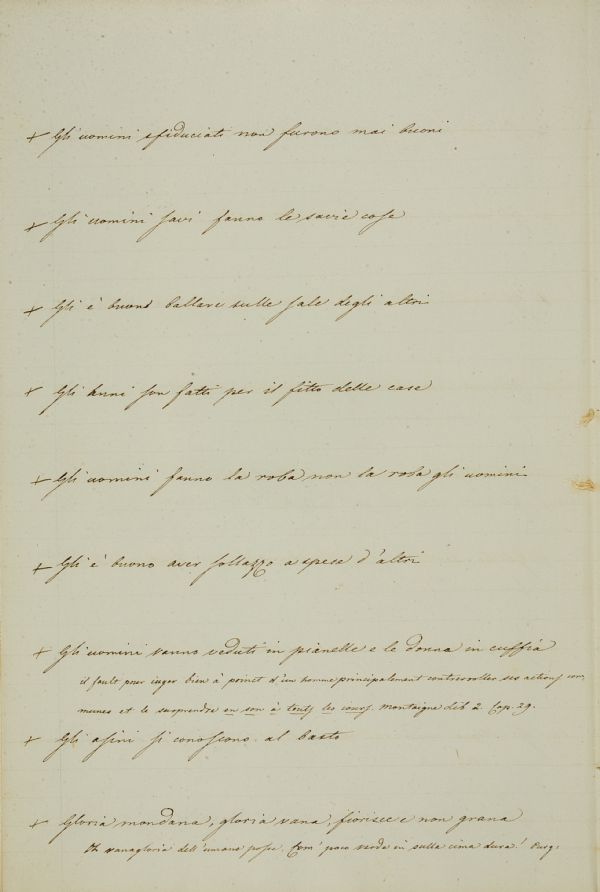 + Gli uomini sfiduciati non furono mai buoni
+ Gli uomini savi fanno le savie cose
+ Gli è buono ballare sulle sale degli altri
+ Gli anni son fatti per il fitto delle case
+ Gli uomini fanno la roba non la roba gli uomini
+ Gli è buono aver sollazzo a spese d'altri
+ Gli uomini vanno veduti in pianelle e le donna in cuffia
il fault pour iuger bien à poinct d'un homme principalement contreroller ses actions com-
munes et le surprendre en son à touts les jours. Montaigne lib 2. Cap. 29.
+ Gli asini si conoscono al basto
+ Gloria mondana, gloria vana, fiorisce e non grana
Oh vanagloria dell'umane posse. Com' poco verde in sulla cima dura! Purg: